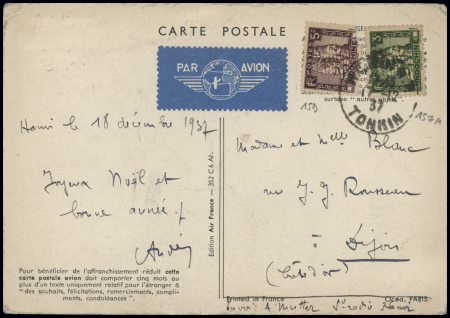 CARTE POSTALE
PAR AVION
surtaxe "autres objets"
17-12
37
TONKIN
159
157A
Hanoi le 18 décembre 1937
Joyeux Noël et
bonne année !
André
Madame et Melle Blanc
rue J. J. Rousseau
à Dijon
(Côte d'or)
Edition Air France - 352 C.6 Af.
Pour bénéficier de l'affranchissement réduit cette
carte postale avion doit comporter cinq mots au
plus d'un texte uniquement relatif pour l'étranger à
"des souhaits, félicitations, remerciements, compli-
ments, condoléances".
Printed in France
Océa, PARIS.